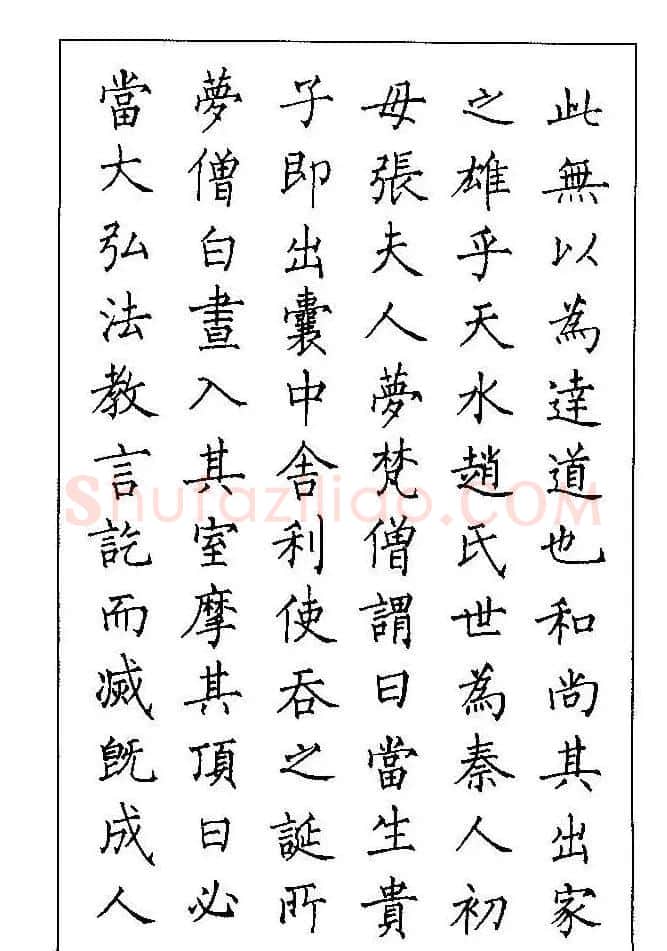 此無以為達道也和尚其出家
之雄乎天水趙氏世為秦人初
母張夫人夢梵僧謂曰當生貴
子即出囊中舍利使吞之誕所
夢僧白晝入其室摩其頂曰必
當大弘法教言訖而滅既成人
Shufaziliao.COM